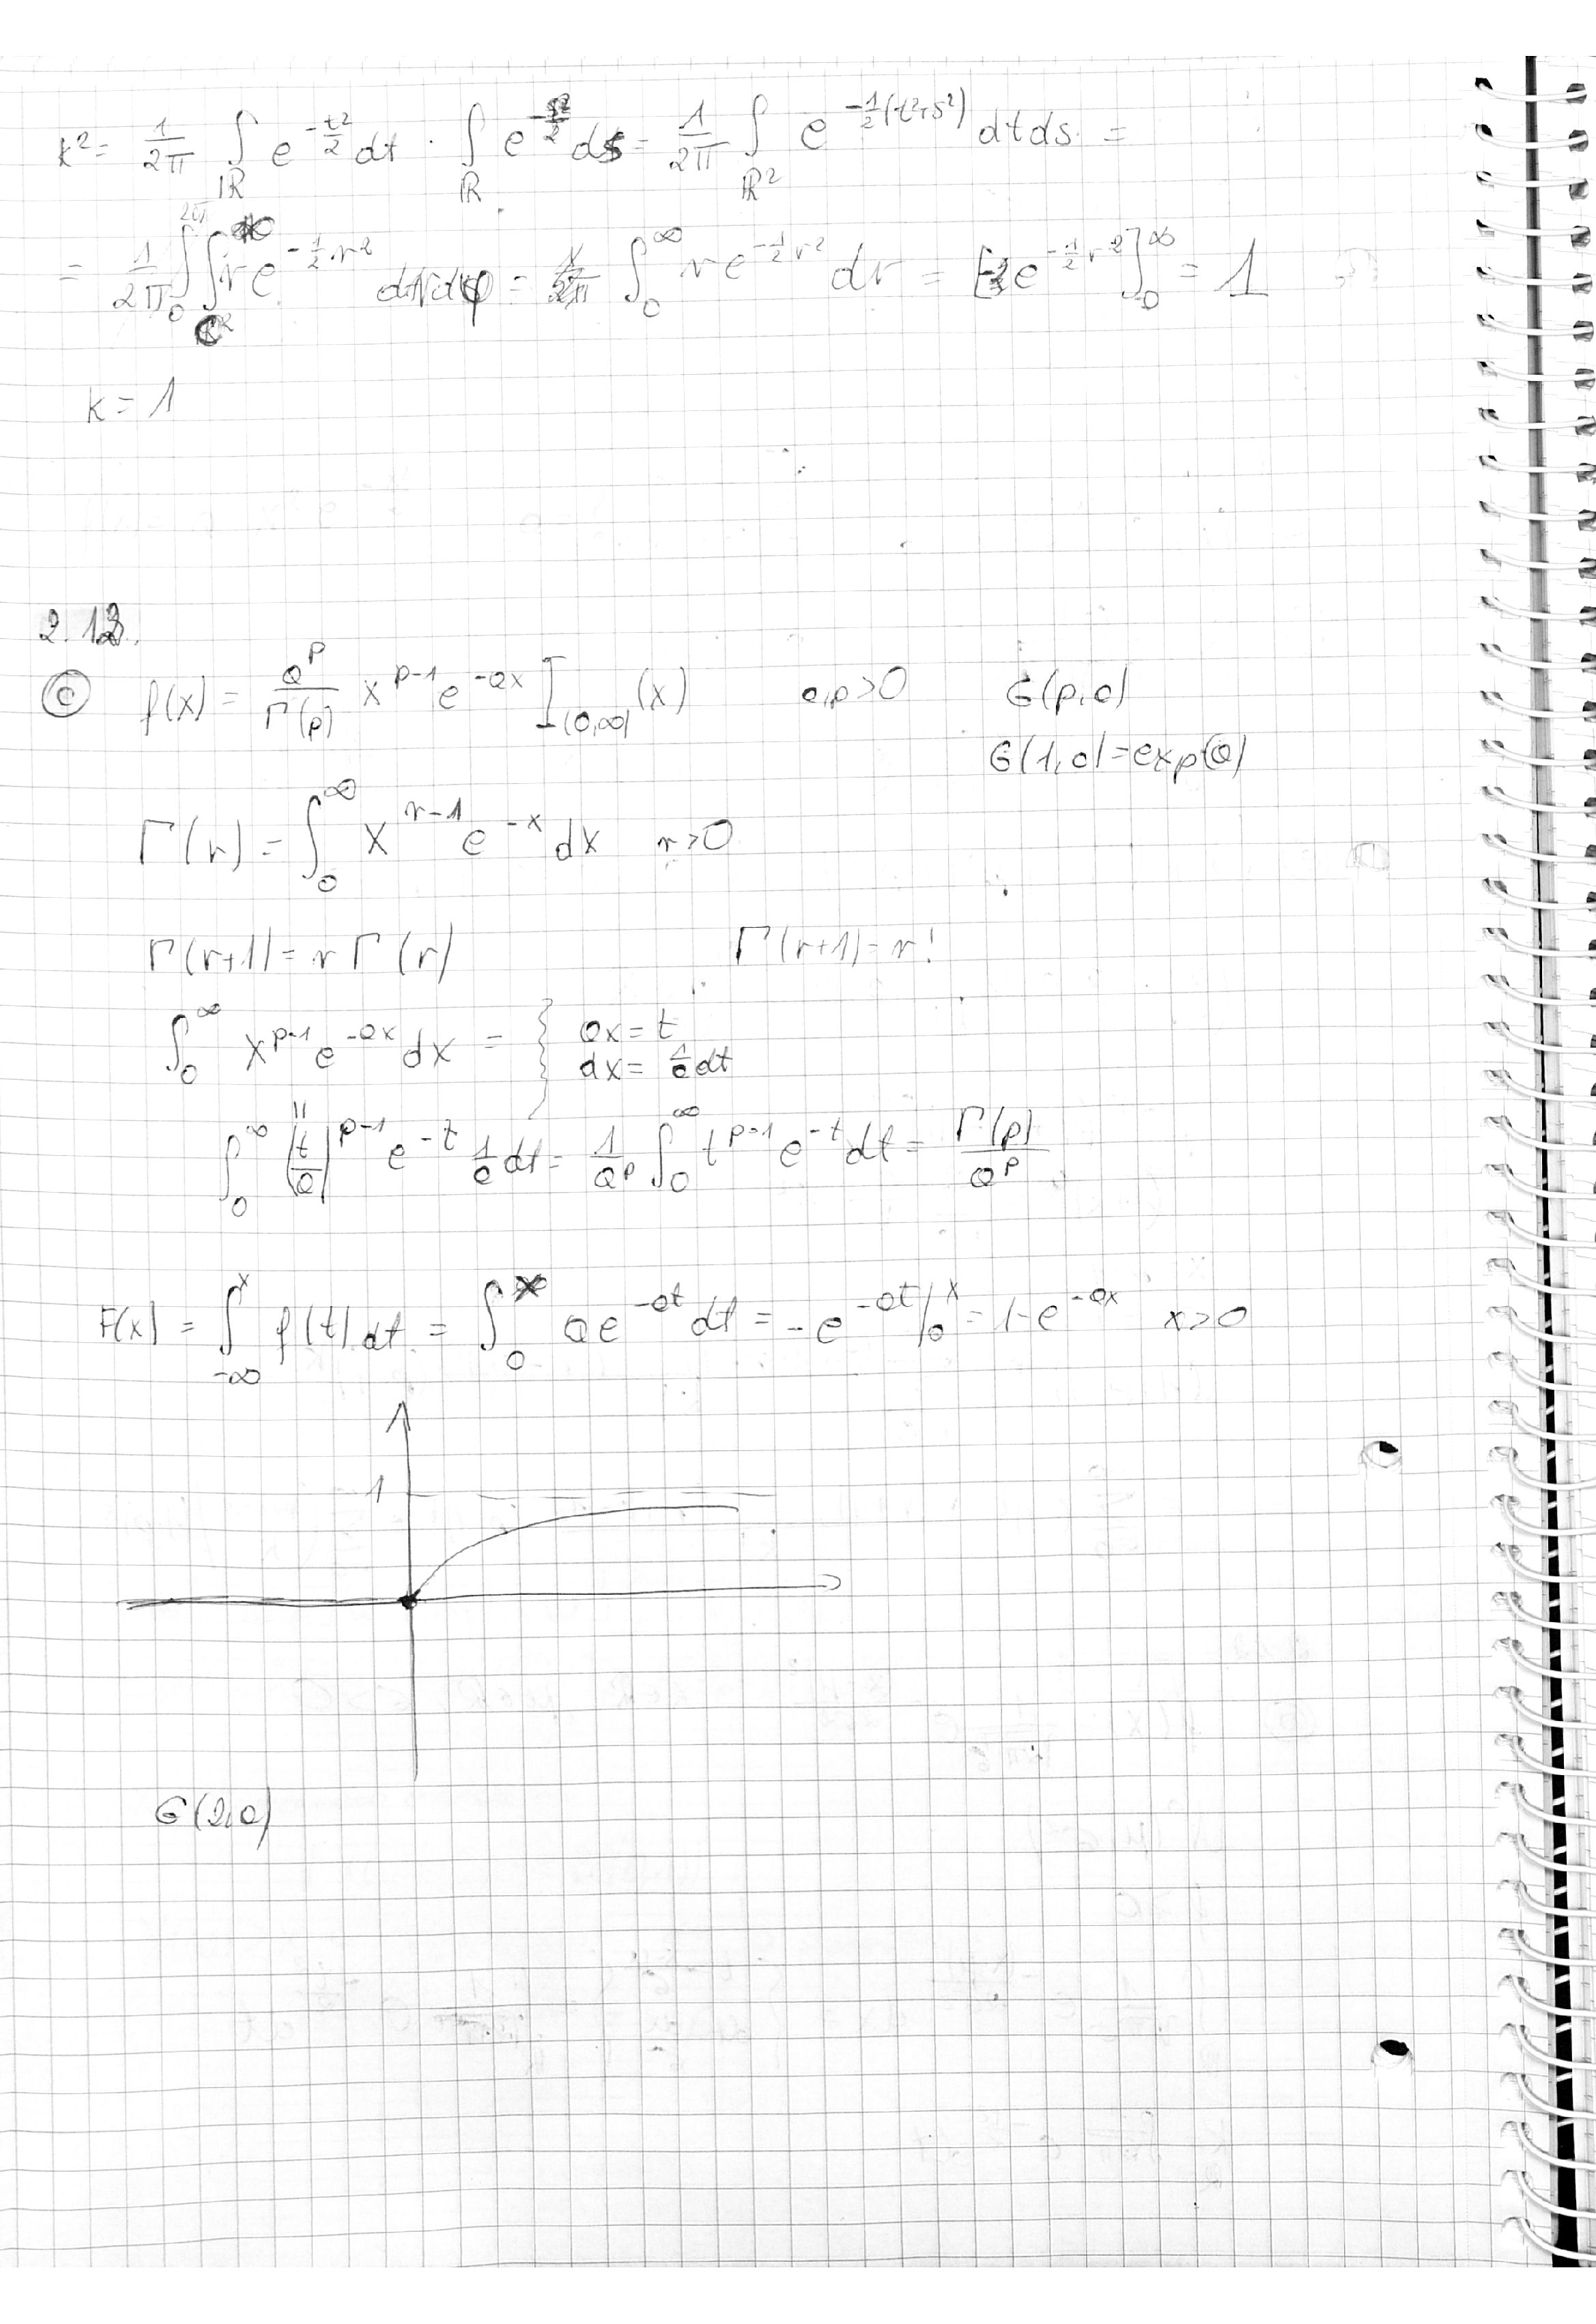 k² = 1/2π ∫_ℝ e^{-t²/2} dt · ∫_ℝ e^{-s²/2} ds = 1/2π ∫_ℝ² e^{-1/2(t²+s²)} dt ds =
= 1/2π ∫_0^{2π} ∫ r e^{-1/2·r²} dr dφ = ∫_0^∞ r e^{-1/2 r²} dr = [-e^{-1/2 r²}]_0^∞ = 1
k = 1
2.12.
ⓒ f(x) = a^p/Γ(p) x^{p-1} e^{-ax} I_{(0,∞)}(x) a,p>0 G(p,a)
G(1,a) = exp(a)
Γ(r) = ∫_0^∞ x^{r-1} e^{-x} dx r>0
Γ(r+1) = r Γ(r) Γ(r+1) = r!
∫_0^∞ x^{p-1} e^{-ax} dx = { ax = t
dx = 1/a dt
||
∫_0^∞ (t/a)^{p-1} e^{-t} 1/a dt = 1/a^p ∫_0^∞ t^{p-1} e^{-t} dt = Γ(p)/a^p
F(x) = ∫_{-∞}^x f(t) dt = ∫_0^x a e^{-at} dt = -e^{-at} |_0^x = 1-e^{-ax} x>0
1
G(2,a)